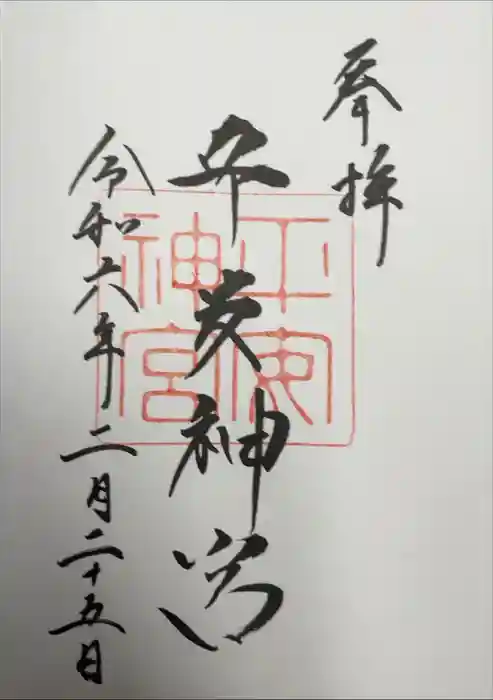 奉拝
平安神宮
令和六年二月二十五日
平安
神宮